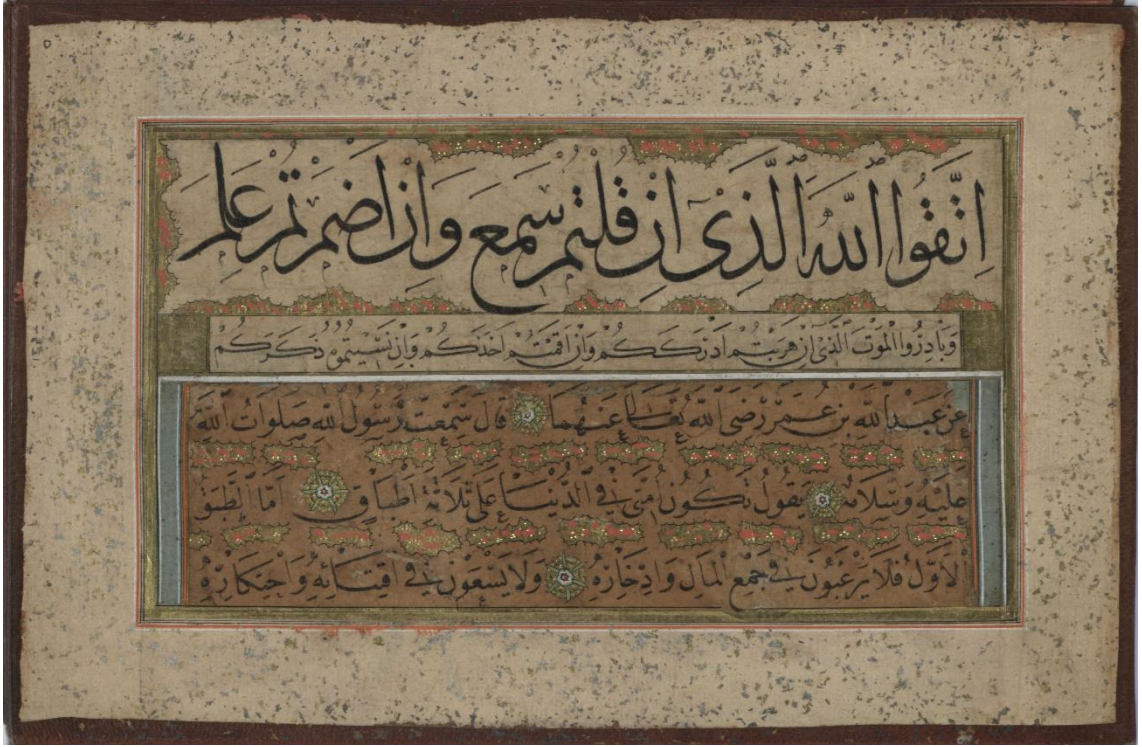 اِتَّقُوا اللّٰهَ الَّذِى اِنْ قُلْتُمْ سَمِعَ وَاِنْ اَضْمَرْتُمْ عَلِمَ
وَبَادِرُوا الْمَوْتَ الَّذِى اِنْ هَرَبْتُمْ اَدْرَكَكُمْ وَاِنْ اَقَمْتُمْ اَخَذَكُمْ وَاِنْ نَسِيتُمُوهُ ذَكَرَكُمْ
عَنْ عَبْدِ اللّٰهِ بْنِ عُمَرَ رَضِىَ اللّٰهُ تَعَالٰى عَنْهُمَا قَالَ سَمِعْتُ رَسُولَ اللّٰهِ صَلَوَاتُ اللّٰهِ
عَلَيْهِ وَسَلَامُهُ يَقُولُ تَكُونُ اُمَّتِى فِى الدُّنْيَا عَلَى ثَلَاثَةِ اَطْبَاقٍ اَمَّا الطَّبَقُ
الْاَوَّلُ فَلَا يَرْغَبُونَ فِى جَمْعِ الْمَالِ وَادِّخَارِهِ وَلَا يَسْعَوْنَ فِى اقْتِنَائِهِ وَاحْتِكَارِهِ